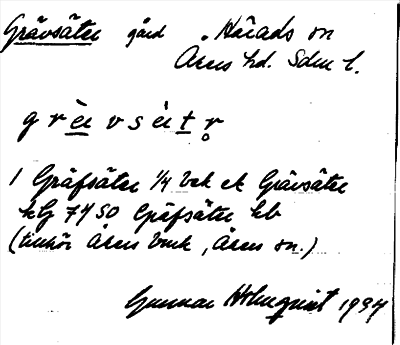 Grävsäter gård Härads sn
Åkers hd. Sdm l.
grä̀vsä̀tr̥
1 Gräfsäter 1/4 Grävsäter
7450 Gräfsäter kb
(tillhör Åkers bruk, Åkers sn.)
Gunnar Holmquist 1934